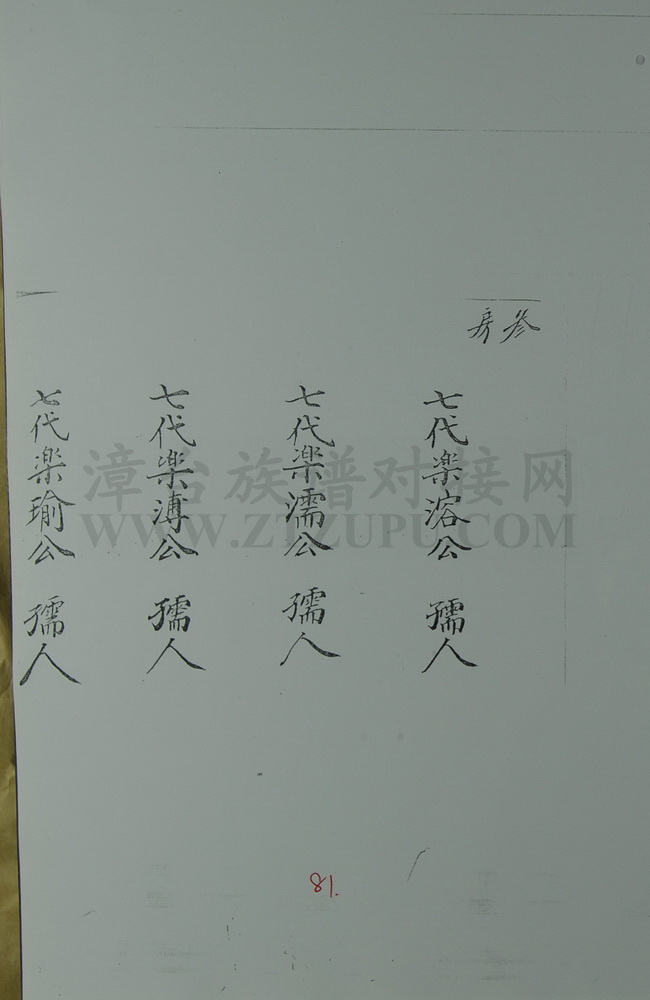 参房
七代楽溶公 孺人
七代楽濡公 孺人
七代楽溥公 孺人
七代楽瑜公 孺人
漳台族谱对接网
WWW.ZTZUPU.COM
18